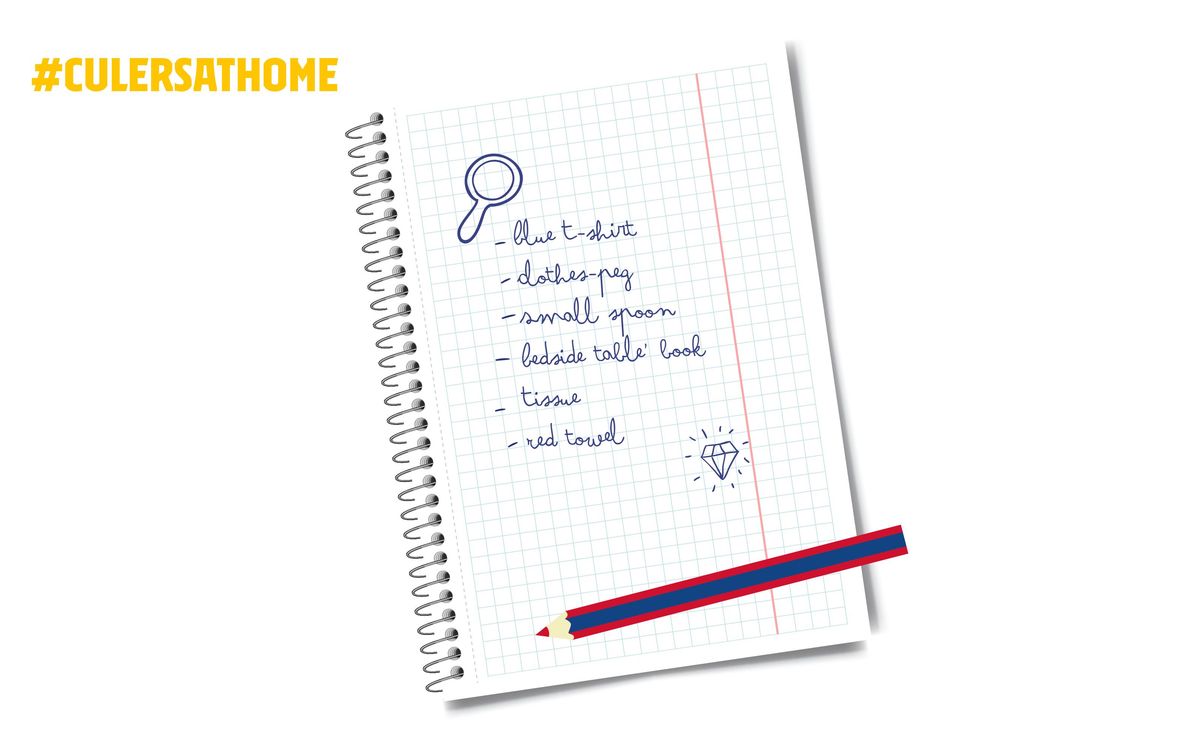 #CULERSATHOME
- blue t-shirt
- clothes-peg
- small spoon
- bedside table' book
- tissue
- red towel